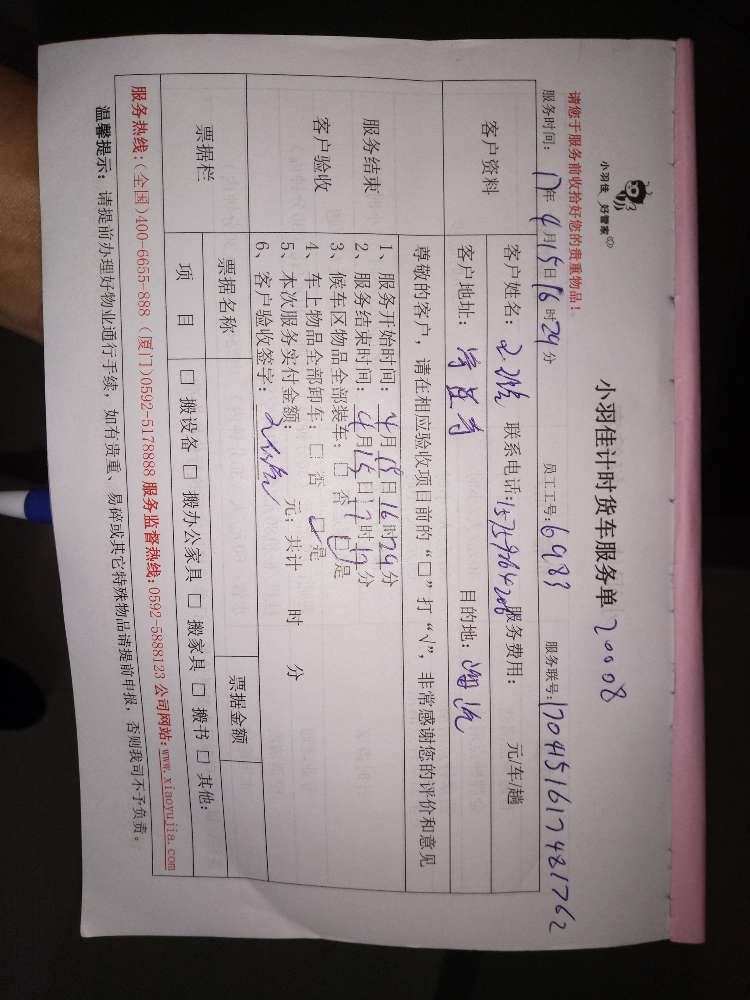 小羽佳 好管家
小羽佳计时货车服务单 20008
请您于服务前收拾好您的贵重物品!
服务时间: 17年4月15日16时29分 员工工号: 6983 服务联号: 1704151617481762
客户资料
客户姓名: 联系电话: 服务费用: 元/车/趟
客户地址: 目的地:
尊敬的客户,请在相应验收项目前的“□”打“√”,非常感谢您的评价和意见
服务结束
客户验收
1、服务开始时间: 4月15日16时29分
2、服务结束时间: 4月15日17时19分
3、候车区物品全部装车: □ 否 □是
4、车上物品全部卸车: □ 否 □是
5、本次服务实付金额: 元; 共计 时 分
6、客户验收签字:
票据栏
票据名称 票据金额
项 目 □ 搬设备 □ 搬办公家具 □ 搬家具 □ 搬书 □ 其他:
服务热线:(全国)400-6655-888 (厦门)0592-5178888 服务监督热线:0592-5888123 公司网站:www.xiaoyujia.com
温馨提示: 请提前办理好物业通行手续,如有贵重、易碎或其它特殊物品请提前申报,否则我司不予负责。